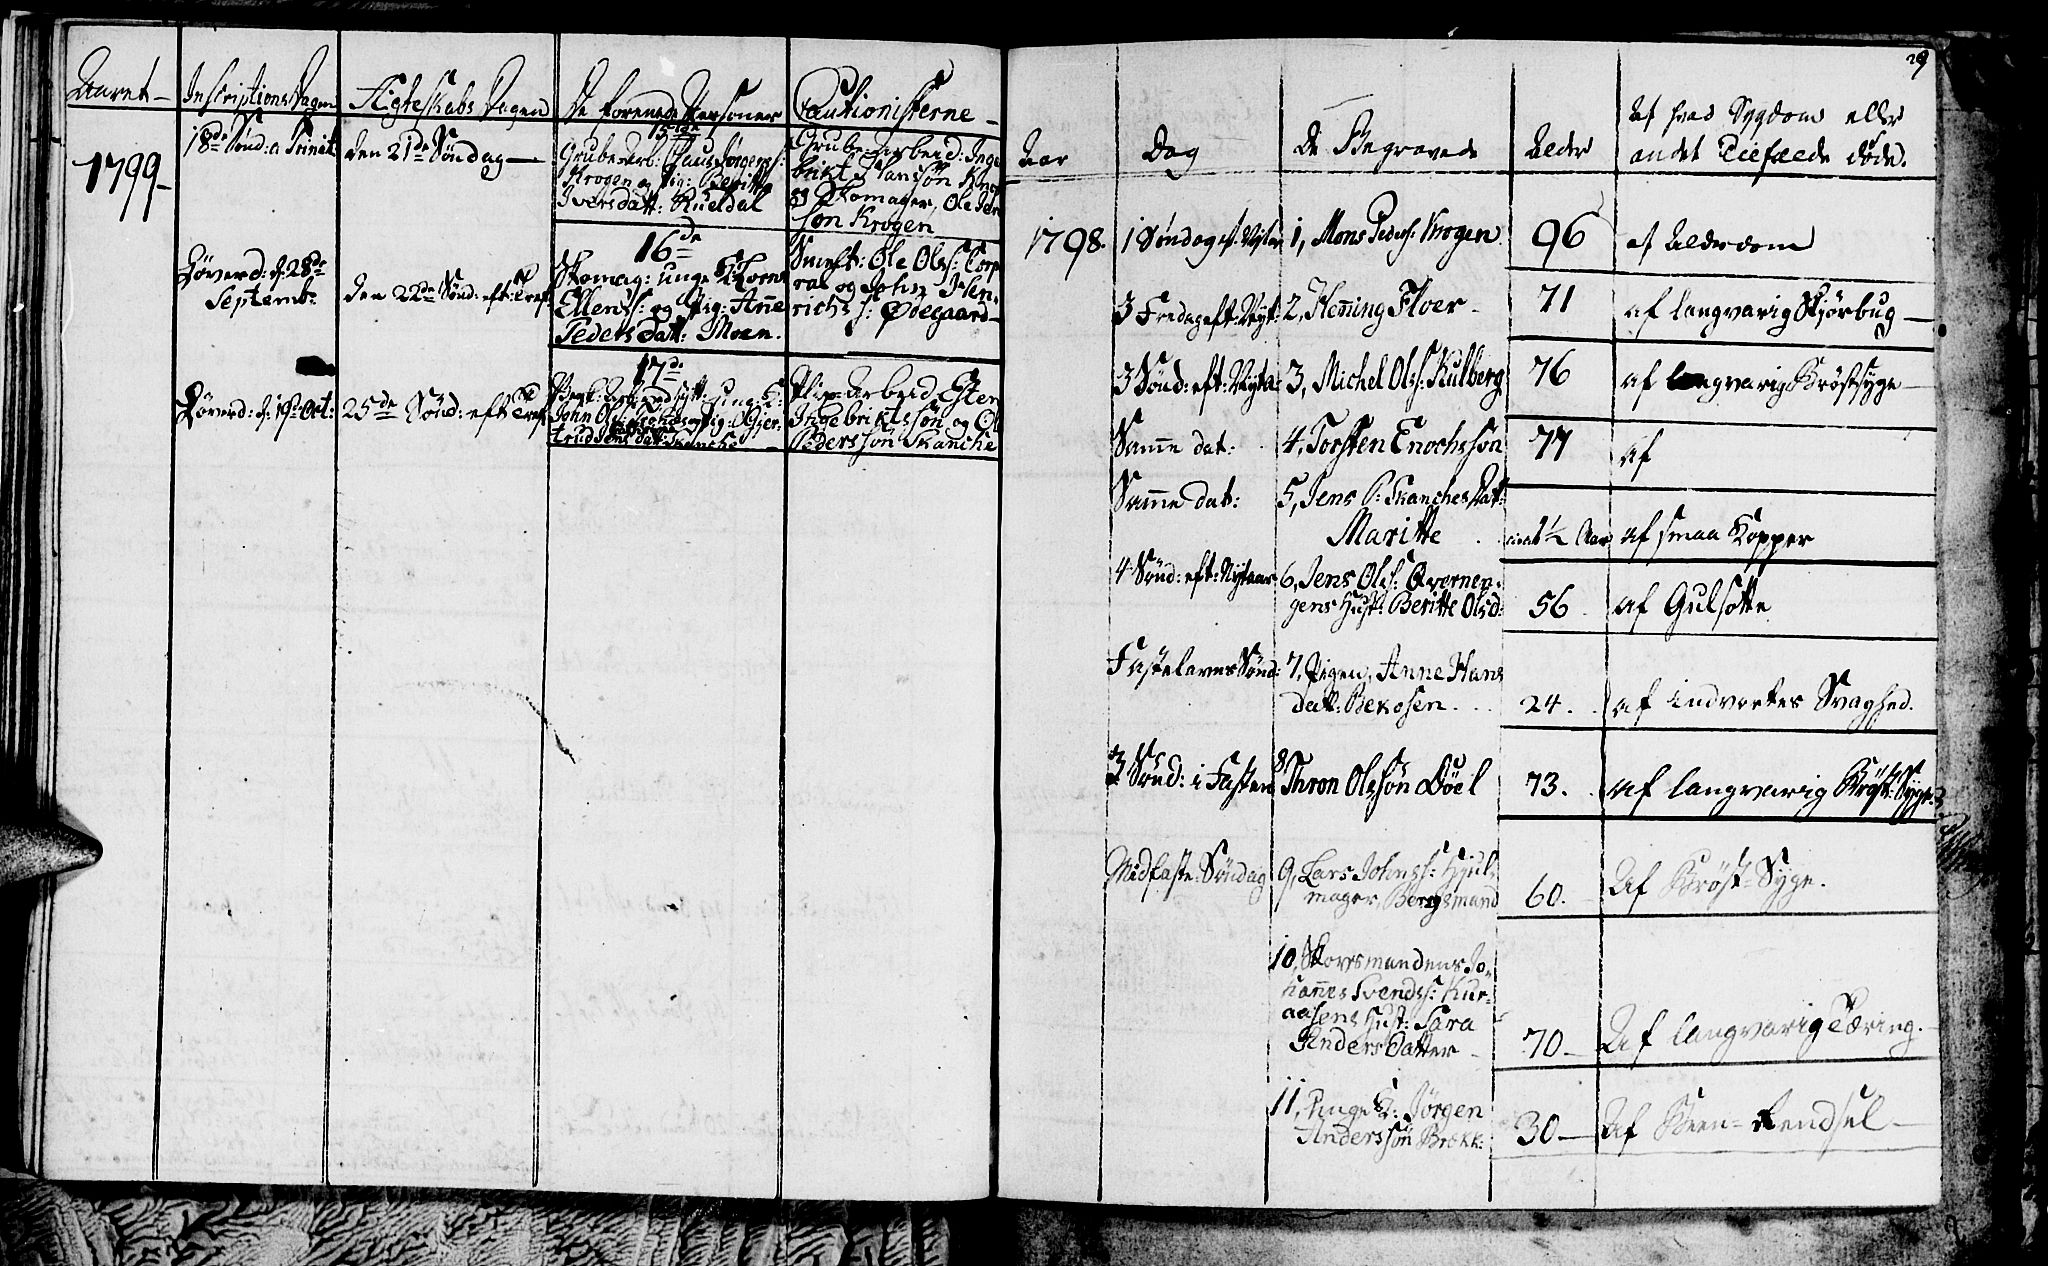 Aaret
Inscriptions Dagen
Ægteskabs Dagen
De forenede Personer
Cautionisterne
1799
18de Sønd: a Trinit
den 21de Søndag
15de
Grube-Arb: Claus Jørgenss:
Krogen og Pig: Beritte
Iversdatt: Kueldal
Grube-Arbeid: Inge
brikt Hanssøn
og Skomager, Ole
søn Krogen
Løverd: d: 28de
Septembr
den 22de Sønd: eft: Tref
16de
Skomag: unge K:
Ellenss: og Pig: Anne
Peders datt: Moen.
Smeft: Ole Olss: Corp
ral og John Hen-
richs s: Ødegaard
Løverd: d: 19 Oct:
25de Sønd: eft: Tref
17de
John Olss:
Ingebriktssøn og Ol
Pederssøn Skanche
29
Aar
Dag
De Begravede
Alder
Af hvad Sygdom eller
andet Tilfælde døde.
1798.
1 Søndag eft: Nytaar
1, Mons Peders: Krogen.
96
af Alderdom
3 Fredag eft: Nyt:
2, Henning Floer
71
af langvarig Skjørbug
3 Sønd: eft: Nyta:
3, Michel Ols: Kulberg
76
af langvarig Brøstsyge
Samme dat:
4, Torsten Enochssøn
77
af
Samme dat:
5, Jens P: Skanches Dat:
Maritte
1 1/2 Aar
af smaa Kopper
4 Sønd: eft: Nytaar
6, Jens Ols: Qvernen-
gens Hust: Beritte Olsd:
56
af Gulsotte
Fastelavns Sønd:
7, Pigen, Anne Hans
datt: Bekosen
24.
af indvortes Svaghed.
3 Sønd: i Fasten
8 Thron Olssøn Døel
73.
af langvarig Brøst-Syge
Midfaste Søndag
9, Lars Johnss: Hjul-
mager, Bergsmand
60.
Af Brøst-Syge.
10, Skovsmandens Jo-
hannes Svendss: Kur-
aasens Hust: Sara
Anders Datter
70
Af langvarig Tæring.
11, Unge K: Jørgen
Anderssøn Brekk:
30
Af Been-Rendsel